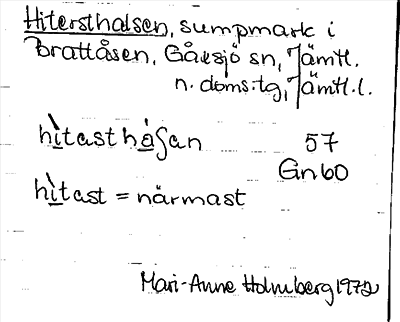 Hitersthalsen, sumpmark i
Brattåsen, Gåxsjö sn, Jämtl.
n. doms:tg, Jämtl.l.
hìtasthaʃan 57
Gn60
hìtast = närmast
Mari-Anne Holmberg 1972